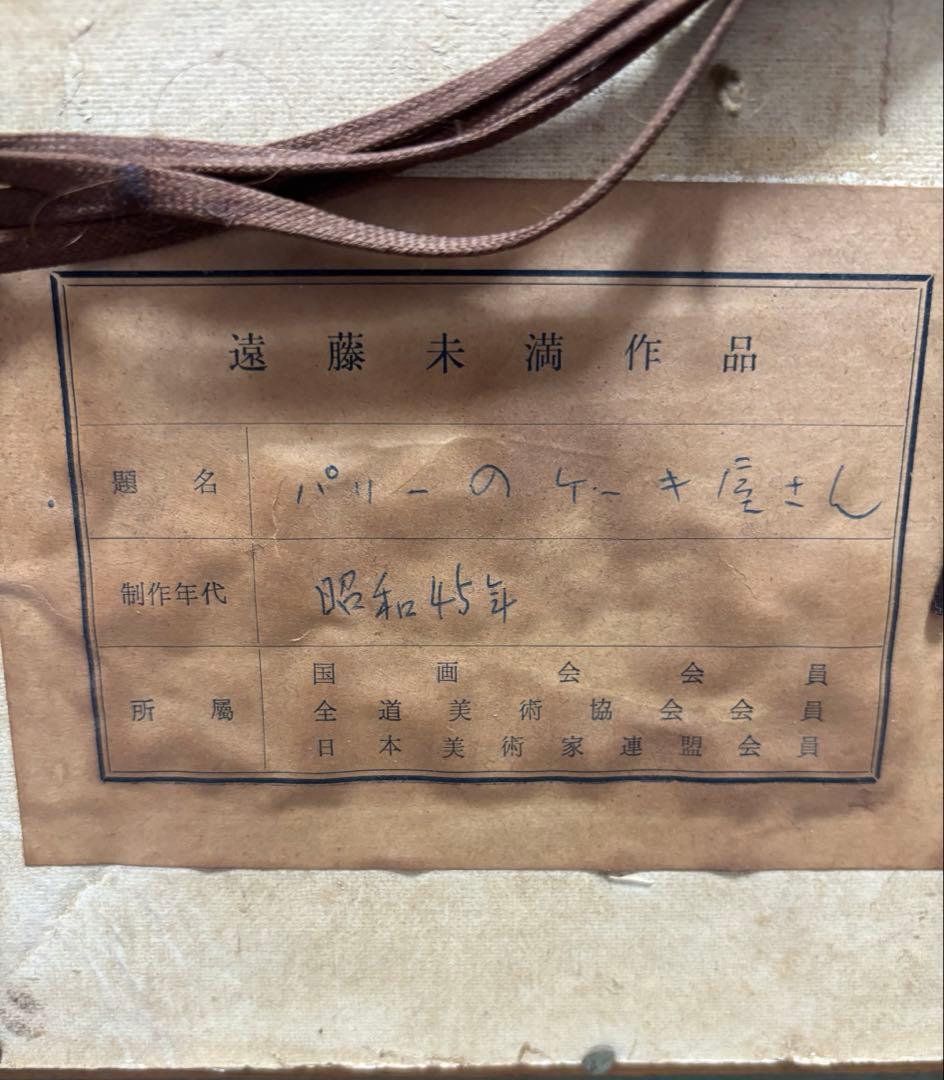 遠藤未満作品
題名 パリーのケーキ屋さん
制作年代 昭和45年
所屬 国画会会員
全道美術協会会員
日本美術家連盟会員